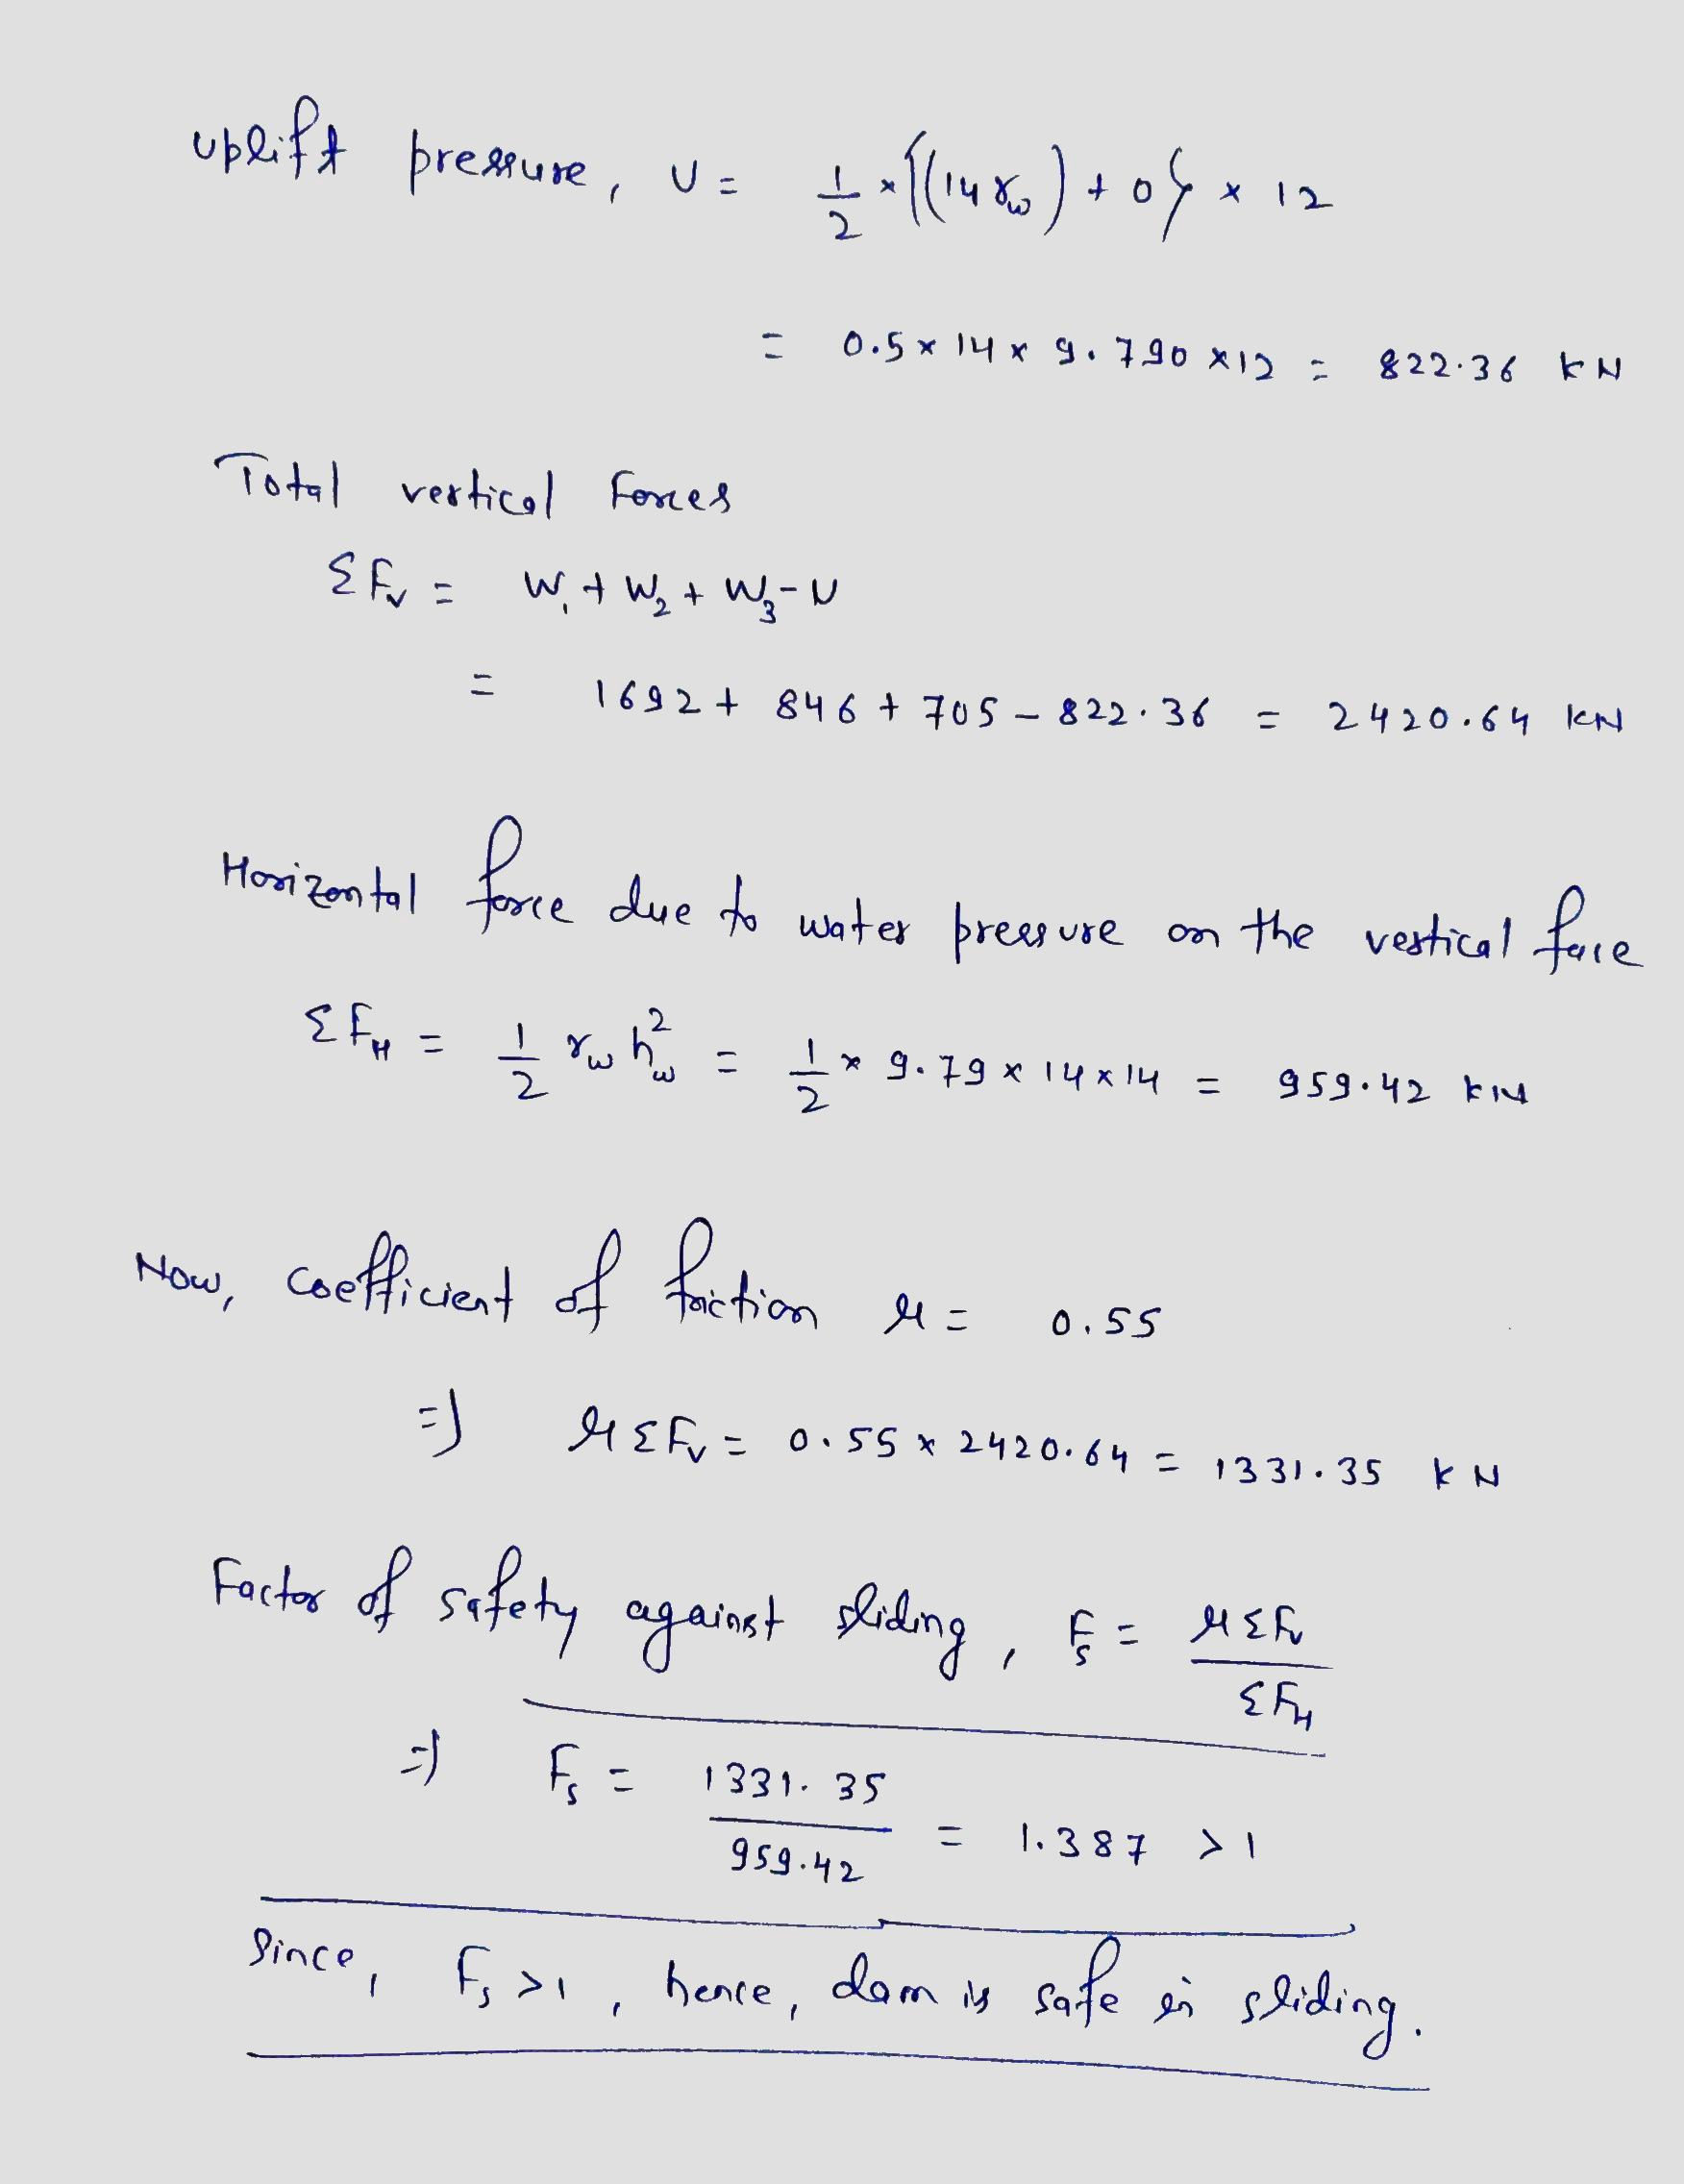 uplift pressure, U = 1/2 × {(14 γw) + 0} × 12
= 0.5 × 14 × 9.790 × 12 = 822.36 KN
Total vertical Forces
ΣFv = W1 + W2 + W3 - U
= 1692 + 846 + 705 - 822.36 = 2420.64 KN
Horizontal force due to water pressure on the vertical face
ΣFH = 1/2 γw hw² = 1/2 × 9.79 × 14 × 14 = 959.42 KN
Now, coefficient of friction μ = 0.55
=) μΣFv = 0.55 × 2420.64 = 1331.35 KN
Factor of safety against sliding, Fs = μΣFv / ΣFH
=) Fs = 1331.35 / 959.42 = 1.387 > 1
Since, Fs > 1, hence, dam is safe in sliding.